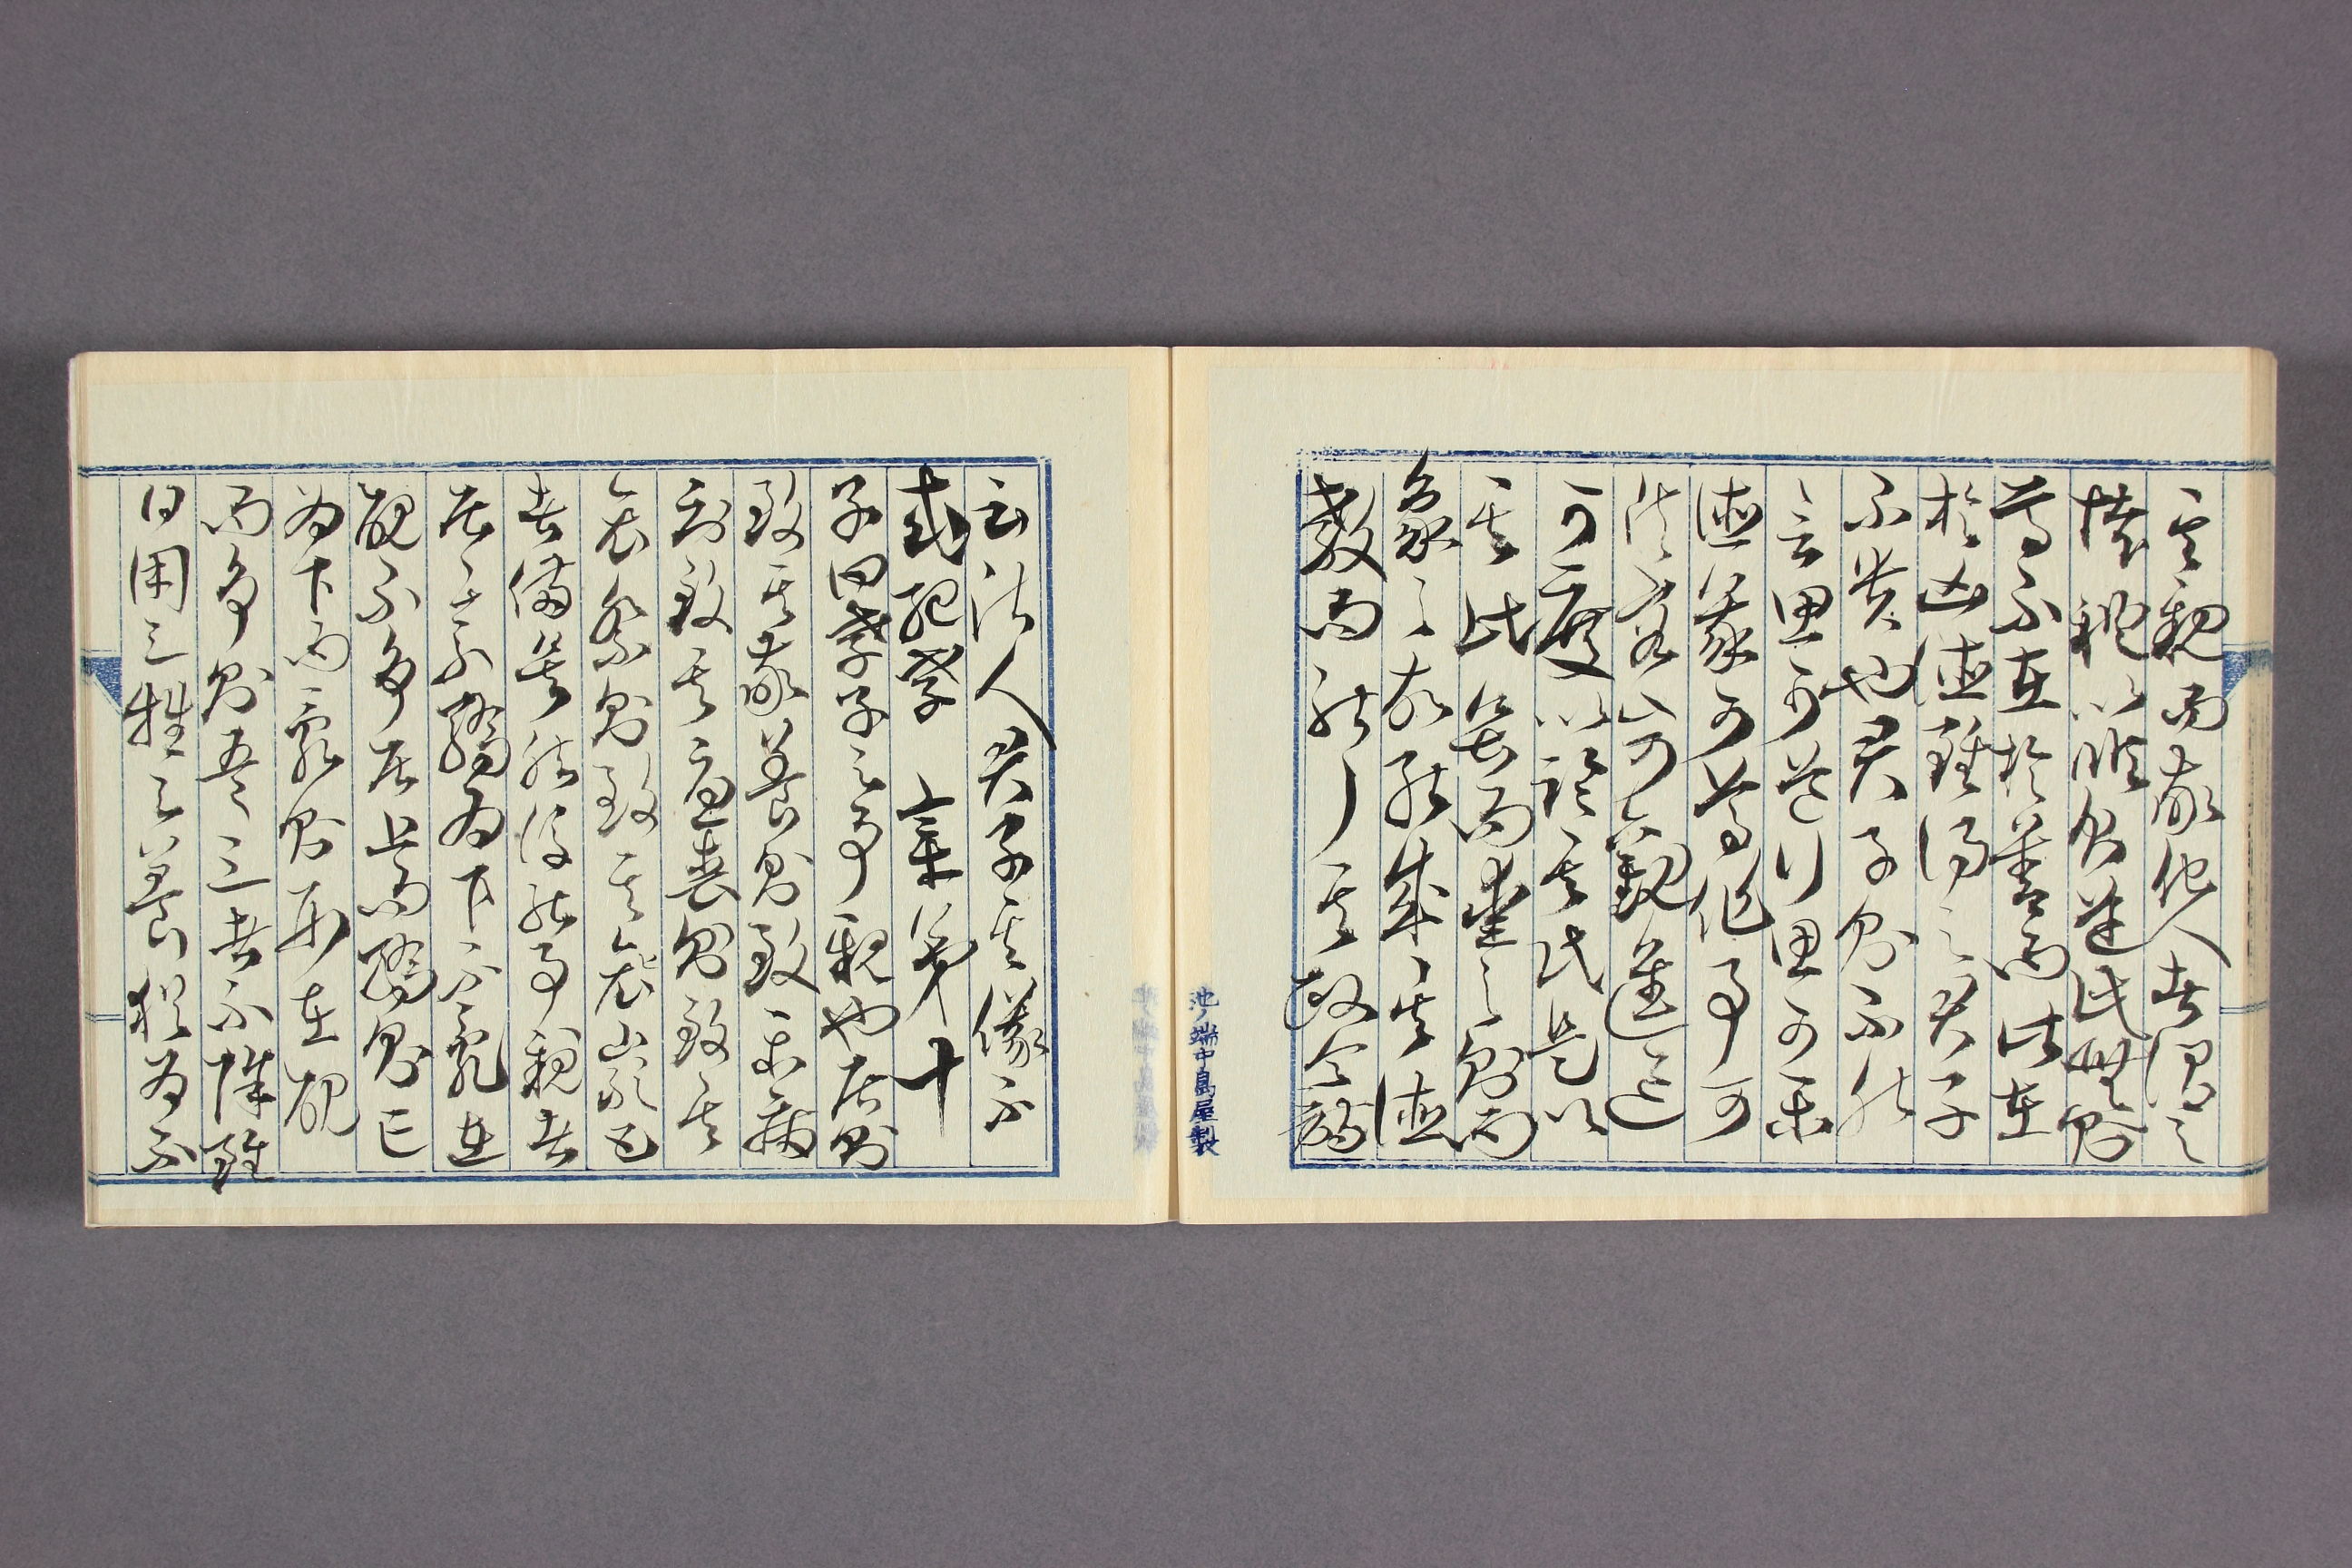 其親而敬他人者謂之
悖禮以順則逆民無則
焉不在於善而皆在
於凶德雖得之君子
不貴也君子則不然
言思可道行思可樂
德義可尊作事可
法容止可觀進退
可度以臨其民是以
其民畏而愛之則而
象之故能成其德
教而行其政令詩
池ノ端中島屋製
云淑人君子其儀不
忒紀孝行章第十
子曰孝子之事親也居則
致其敬養則致其樂病
則致其憂喪則致其
哀祭則致其哀嚴五
者備矣然後能事親者
居上不驕為下不亂在
醜不爭居上而驕則亡
為下而亂則刑在醜
而爭則兵三者不除雖
日用三牲之養猶為不